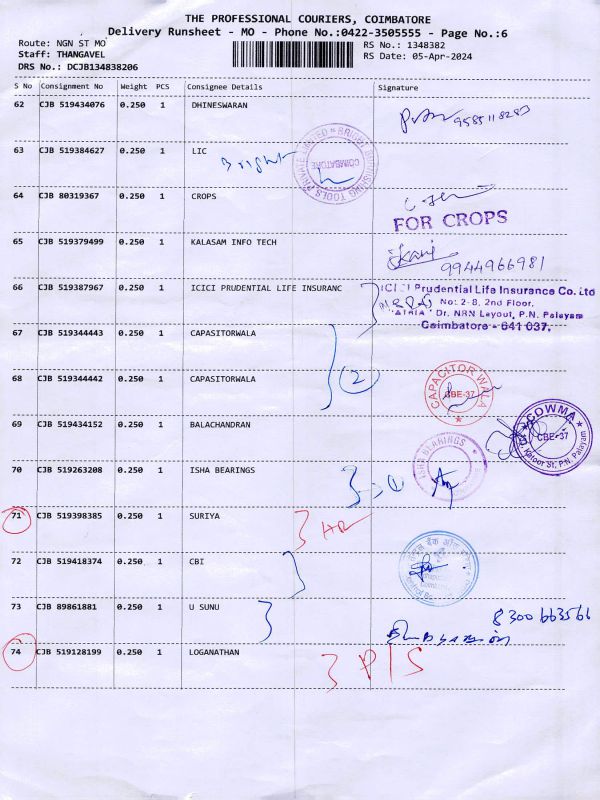 THE PROFESSIONAL COURIERS, COIMBATORE
Delivery Runsheet - MO - Phone No.:0422-3505555 - Page No.:6
Route: NGN ST MO RS No.: 1348382
Staff: THANGAVEL RS Date: 05-Apr-2024
DRS No.: DCJB134838206
S No Consignment No Weight PCS Consignee Details Signature
62 CJB 519434076 0.250 1 DHINESWARAN 9585118283
63 CJB 519384627 0.250 1 LIC Bright BRIGHT BURNISHING TOOLS PRIVATE LIMITED COIMBATORE
64 CJB 80319367 0.250 1 CROPS
FOR CROPS
65 CJB 519379499 0.250 1 KALASAM INFO TECH
9944966981
66 CJB 519387967 0.250 1 ICICI PRUDENTIAL LIFE INSURANC ICICI Prudential Life Insurance Co. Ltd
No: 2-8, 2nd Floor,
Dr. NRN Layout, P.N. Palayam
Coimbatore - 641 037.
67 CJB 519344443 0.250 1 CAPASITORWALA
2
68 CJB 519344442 0.250 1 CAPASITORWALA CAPACITOR WALA CBE-37
69 CJB 519434152 0.250 1 BALACHANDRAN COWMA CBE-37 P.N. Palayam
70 CJB 519263208 0.250 1 ISHA BEARINGS ISHA BEARINGS
71 CJB 519398385 0.250 1 SURIYA
72 CJB 519418374 0.250 1 CBI
73 CJB 89861881 0.250 1 U SUNU 8300663566
74 CJB 519128199 0.250 1 LOGANATHAN P/S